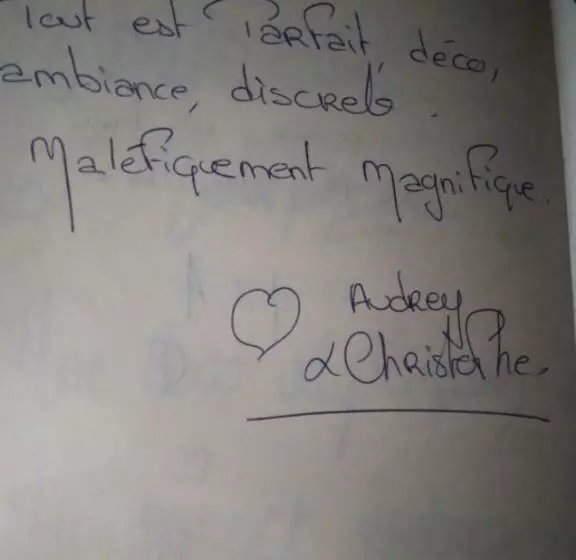 Tout est Parfait, déco,
ambiance, discret.
Maléfiquement Magnifique.
♡ Audrey
& Christophe.